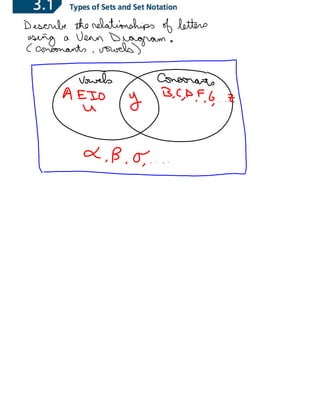 3.1 Types of Sets and Set Notation
Describe the relationships of letters
using a Venn Diagram.
(consonants, vowels)
Vowels Consonants
A E I O y B, C, D, F, G, Z
u
α, β, σ, ....